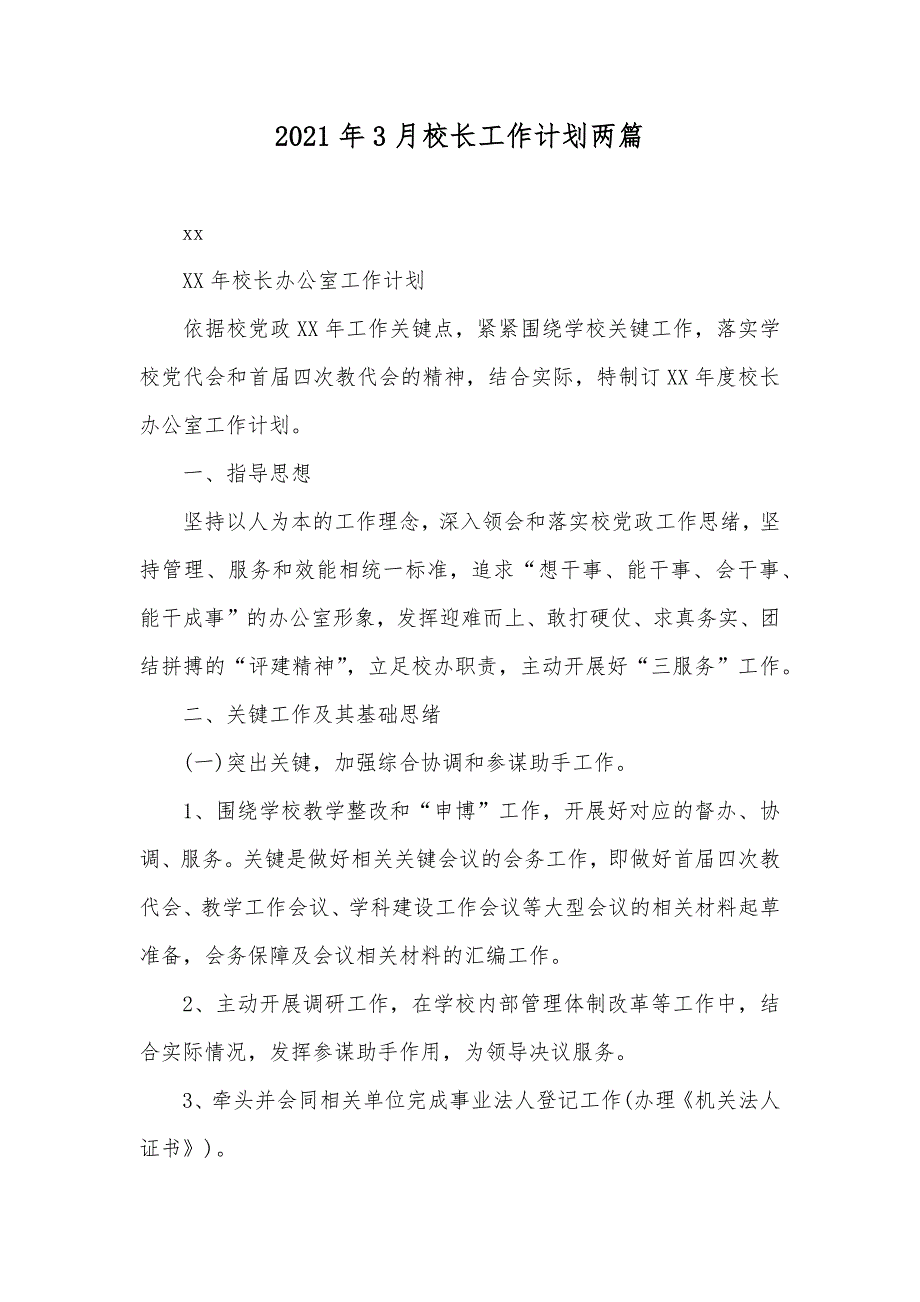 2021 年 3 月校长工作计划两篇
xx
XX 年校长办公室工作计划
依据校党政 XX 年工作关键点，紧紧围绕学校关键工作，落实学
校党代会和首届四次教代会的精神，结合实际，特制订 XX 年度校长
办公室工作计划。
一、指导思想
坚持以人为本的工作理念，深入领会和落实校党政工作思绪，坚
持管理、服务和效能相统一标准，追求“想干事、能干事、会干事、
能干成事”的办公室形象，发挥迎难而上、敢打硬仗、求真务实、团
结拼搏的“评建精神”，立足校办职责，主动开展好“三服务”工作。
二、关键工作及其基础思绪
(一)突出关键，加强综合协调和参谋助手工作。
1、围绕学校教学整改和“申博”工作，开展好对应的督办、协
调、服务。关键是做好相关关键会议的会务工作，即做好首届四次教
代会、教学工作会议、学科建设工作会议等大型会议的相关材料起草
准备，会务保障及会议相关材料的汇编工作。
2、主动开展调研工作，在学校内部管理体制改革等工作中，结
合实际情况，发挥参谋助手作用，为领导决议服务。
3、牵头并会同相关单位完成事业法人登记工作(办理《机关法人
证书》)。